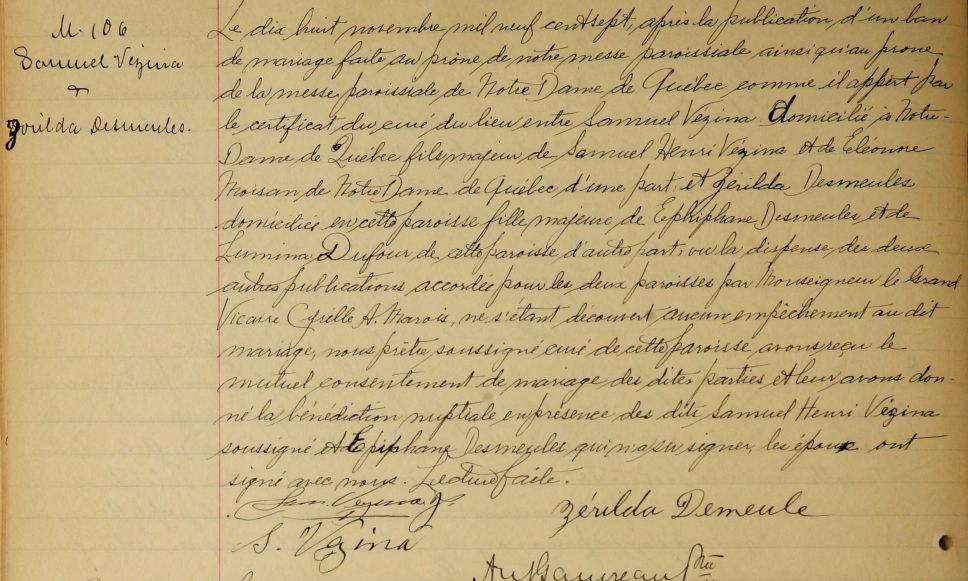 M. 106
Samuel Vézina
&
Zérilda Desmeules.
Le dix huit novembre mil neuf cent sept, après la publication d'un ban
de mariage faite au prône de notre messe paroissiale ainsi qu'au prône
de la messe paroissiale de Notre Dame de Québec comme il appert par
le certificat du curé du lieu entre Samuel Vézina domicilié à Notre-
Dame de Québec fils majeur de Samuel Henri Vézina et de Eléonore
Moisan de Notre Dame de Québec d'une part, et Zérilda Desmeules
domiciliée en cette paroisse fille majeure de Ephiphane Desmeules et de
Lumina Dufour de cette paroisse d'autre part, vu la dispense des deux
autres publications accordée pour les deux paroisses par Monseigneur le Grand
Vicaire Cyrille A. Marois, ne s'étant découvert aucun empêchement au dit
mariage, nous prêtre soussigné curé de cette paroisse avons reçu le
mutuel consentement de mariage des dites parties et leur avons don-
né la bénédiction nuptiale en présence des dits Samuel Henri Vézina
soussigné et Epiphane Desmeules qui n'a su signer, les époux ont
signé avec nous. Lecture faite.
Sam. Vezina Jr.
Zérilda Demeule
S. Vézina
Ptre